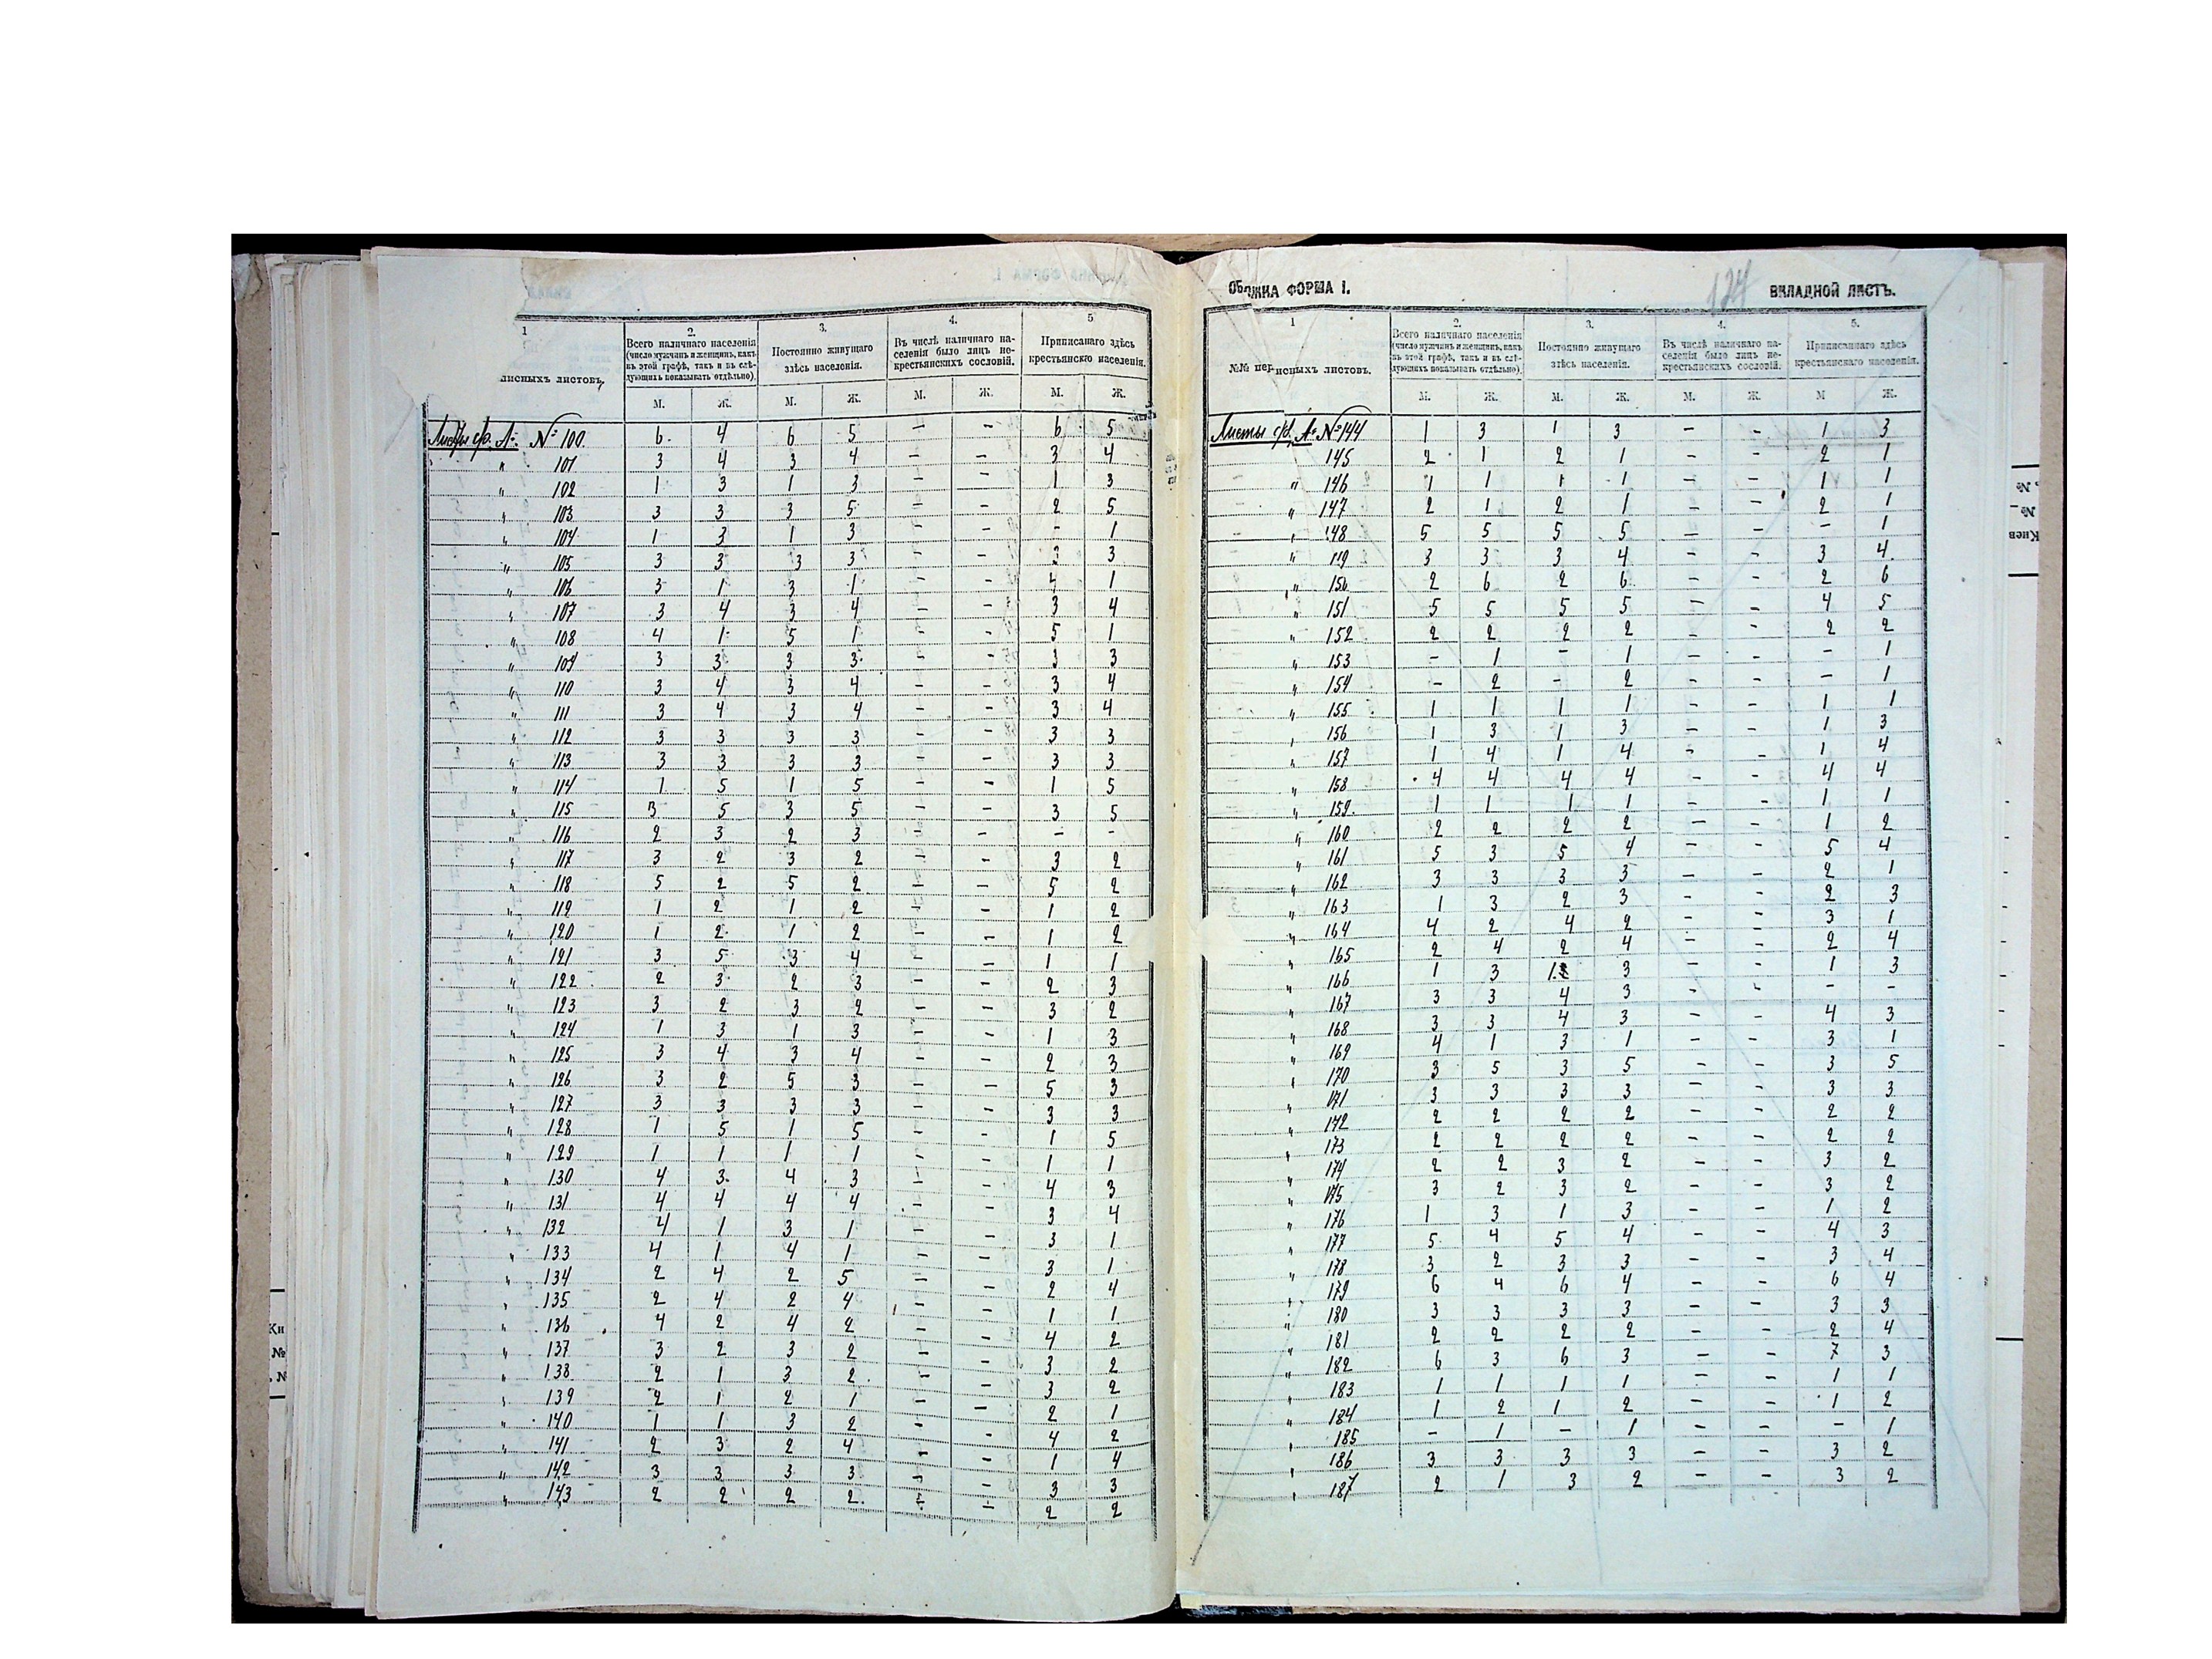 1
2.
3.
4.
5
писныхъ листовъ,
Всего наличнаго населенія (число мужчинъ и женщинъ, какъ въ этой графѣ, такъ и въ слѣдующихъ показывать отдѣльно).
Постоянно живущаго здѣсь населенія.
Въ числѣ наличнаго населенія было лицъ не-крестьянскихъ сословій.
Приписанаго здѣсь крестьянскго населенія.
М. Ж. М. Ж. М. Ж. М. Ж.
Листы ф. А. № 100. 6. 4 6 5 — — 6 5
" 101 3 4 3 4 — — 3 4
" 102 1 3 1 3 — — 1 3
" 103 3 3 3 5 — — 2 5
" 104 1 3 1 3 — — - 1
" 105 3 3 3 3 — — 3 3
" 106 3 1 3 1 — — 1
" 107 3 4 3 4 — — 3 4
" 108 4 1 5 1 — — 5 1
" 109 3 3 3 3 — — 3 3
" 110 3 4 3 4 — — 3 4
" 111 3 4 3 4 — — 3 4
" 112 3 3 3 3 — — 3 3
" 113 3 3 3 3 — — 3 3
" 114 1 5 1 5 — — 1 5
" 115 3 5 3 5 — — 3 5
" 116 2 3 2 3 — — - -
" 117 3 2 3 2 — — 3 2
" 118 5 2 5 2 — — 5 2
" 119 1 2 1 2 — — 1 2
" 120 1 2 1 2 — — 1 2
" 121 3 5 3 4 — — 1 1
" 122 2 3 2 3 — — 2 3
" 123 3 2 3 2 — — 3 2
" 124 1 3 1 3 — — 1 3
" 125 3 4 3 4 — — 2 3
" 126 3 2 5 3 — — 5 3
" 127 3 3 3 3 — — 3 3
" 128 1 5 1 5 — — 1 5
" 129 1 1 1 1 — — 1 1
" 130 4 3 4 3 — — 4 3
" 131 4 4 4 4 — — 3 4
" 132 4 1 3 1 — — 3 1
" 133 4 1 4 1 — — 3 1
" 134 2 4 2 5 — — 2 4
" 135 2 4 2 4 — — 1 1
" 136 4 2 4 2 — — 4 2
" 137 3 2 3 2 — — 3 2
" 138 2 1 3 2 — — 3 2
" 139 2 1 2 1 — — 2 1
" 140 1 1 3 2 — — 4 2
" 141 2 3 2 4 — — 1 4
" 142 3 3 3 3 — — 3 3
" 143 2 2 2 2 — — 2 2
ОБЛОЖКА ФОРМА I.
ВКЛАДНОЙ ЛИСТЪ.
1
2.
3.
4.
5.
№№ переписныхъ листовъ.
Всего наличнаго населенія (число мужчинъ и женщинъ, какъ въ этой графѣ, такъ и въ слѣдующихъ показывать отдѣльно).
Постоянно живущаго здѣсь населенія.
Въ числѣ наличнаго населенія было лицъ не-крестьянскихъ сословій.
Приписаннаго здѣсь крестьянскаго населенія.
М. Ж. М. Ж. М. Ж. М Ж.
Листы ф. А. № 144 1 3 1 3 — — 1 3
145 2 1 2 1 — — 2 1
" 146 1 1 1 1 — — 1 1
" 147 2 1 2 1 — — 2 1
" 148 5 5 5 5 — — - 1
" 149 3 3 3 4 — — 3 4
" 150 2 6 2 6 — — 2 6
" 151 5 5 5 5 — — 4 5
" 152 2 2 2 2 — — 2 2
" 153 - 1 - 1 — — - 1
" 154 - 2 - 2 — — - 1
" 155 1 1 1 1 — — 1 1
" 156 1 3 1 3 — — 1 3
" 157 1 4 1 4 — — 1 4
" 158 4 4 4 4 — — 4 4
" 159 1 1 1 1 — — 1 1
" 160 2 2 2 2 — — 1 2
" 161 5 3 5 4 — — 5 4
" 162 3 3 3 3 — — 2 1
" 163 1 3 2 3 — — 2 3
" 164 4 2 4 2 — — 3 1
" 165 2 4 2 4 — — 2 4
" 166 1 3 1 3 — — 1 3
" 167 3 3 4 3 — — - -
" 168 3 3 4 3 — — 4 3
" 169 4 1 3 1 — — 3 1
" 170 3 5 3 5 — — 3 5
" 171 3 3 3 3 — — 3 3
" 172 2 2 2 2 — — 2 2
" 173 2 2 2 2 — — 2 2
" 174 2 2 3 2 — — 3 2
" 175 3 2 3 2 — — 3 2
" 176 1 3 1 3 — — 1 2
" 177 5 4 5 4 — — 4 3
" 178 3 2 3 3 — — 3 4
" 179 6 4 6 4 — — 6 4
" 180 3 3 3 3 — — 3 3
" 181 2 2 2 2 — — 2 4
" 182 6 3 6 3 — — 7 3
" 183 1 1 1 1 — — 1 1
" 184 1 2 1 2 — — 1 2
" 185 - 1 - 1 — — - 1
" 186 3 3 3 3 — — 3 2
" 187 2 1 3 2 — — 3 2